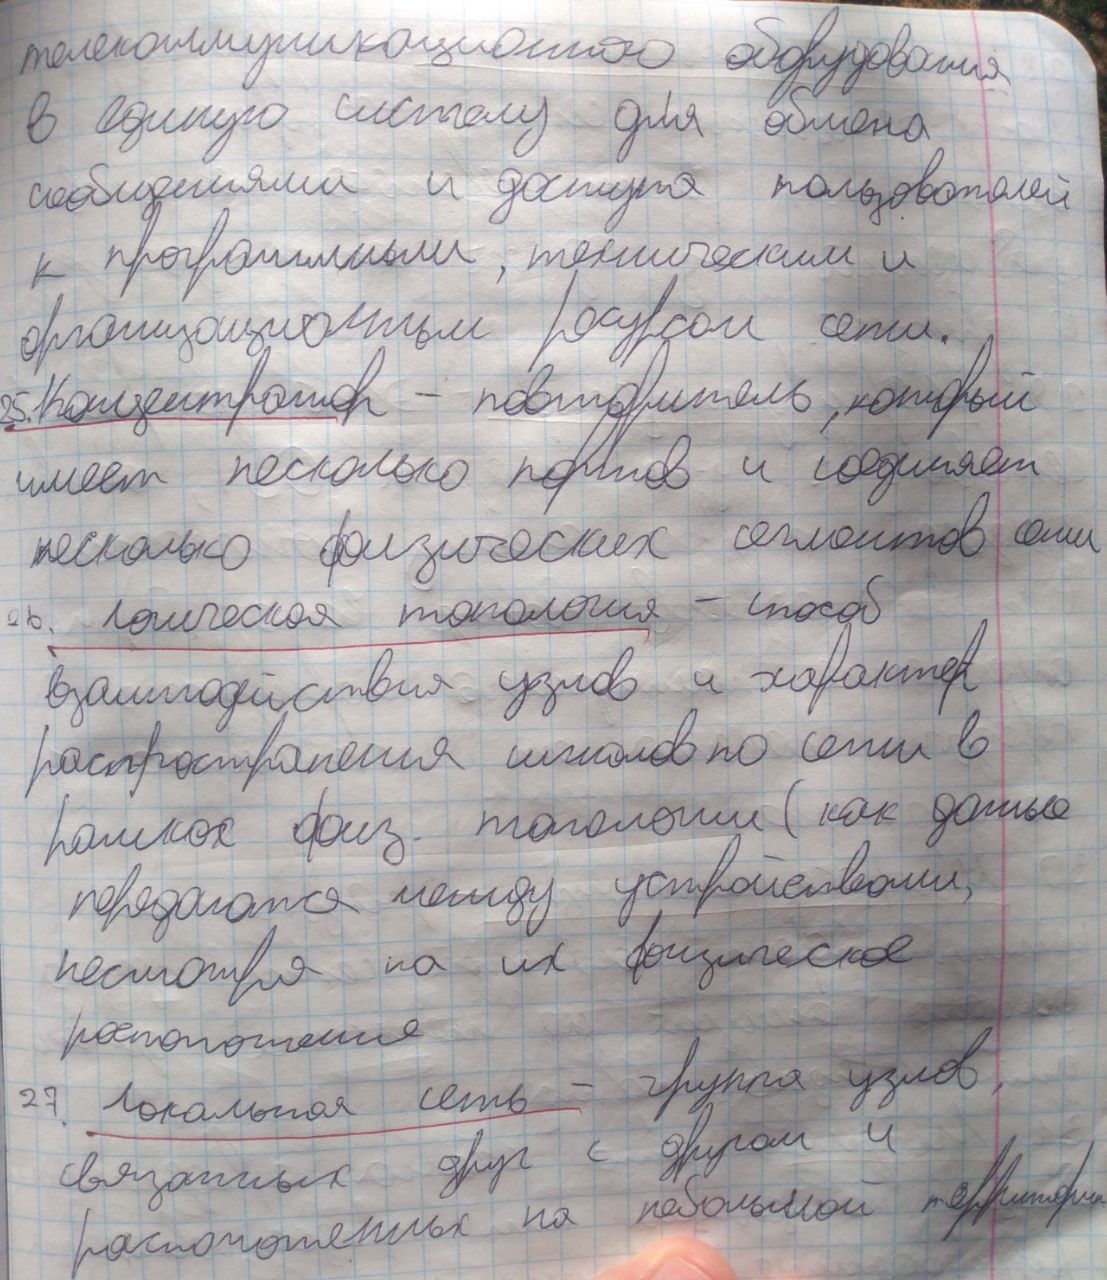 телекоммуникационного оборудования
в единую систему для обмена
сообщениями и доступа пользователей
к программным, техническим и
организационным ресурсам сети.
25. Концентратор – повторитель, который
имеет несколько портов и соединяет
несколько физических сегментов сети
26. Логическая топология – способ
взаимодействия узлов и характер
распространения сигналов по сети в
рамках физ. топологии (как данные
передаются между устройствами,
несмотря на их физическое
расположения
27. Локальная сеть – группа узлов,
связанных друг с другом и
расположенных на небольшой территории